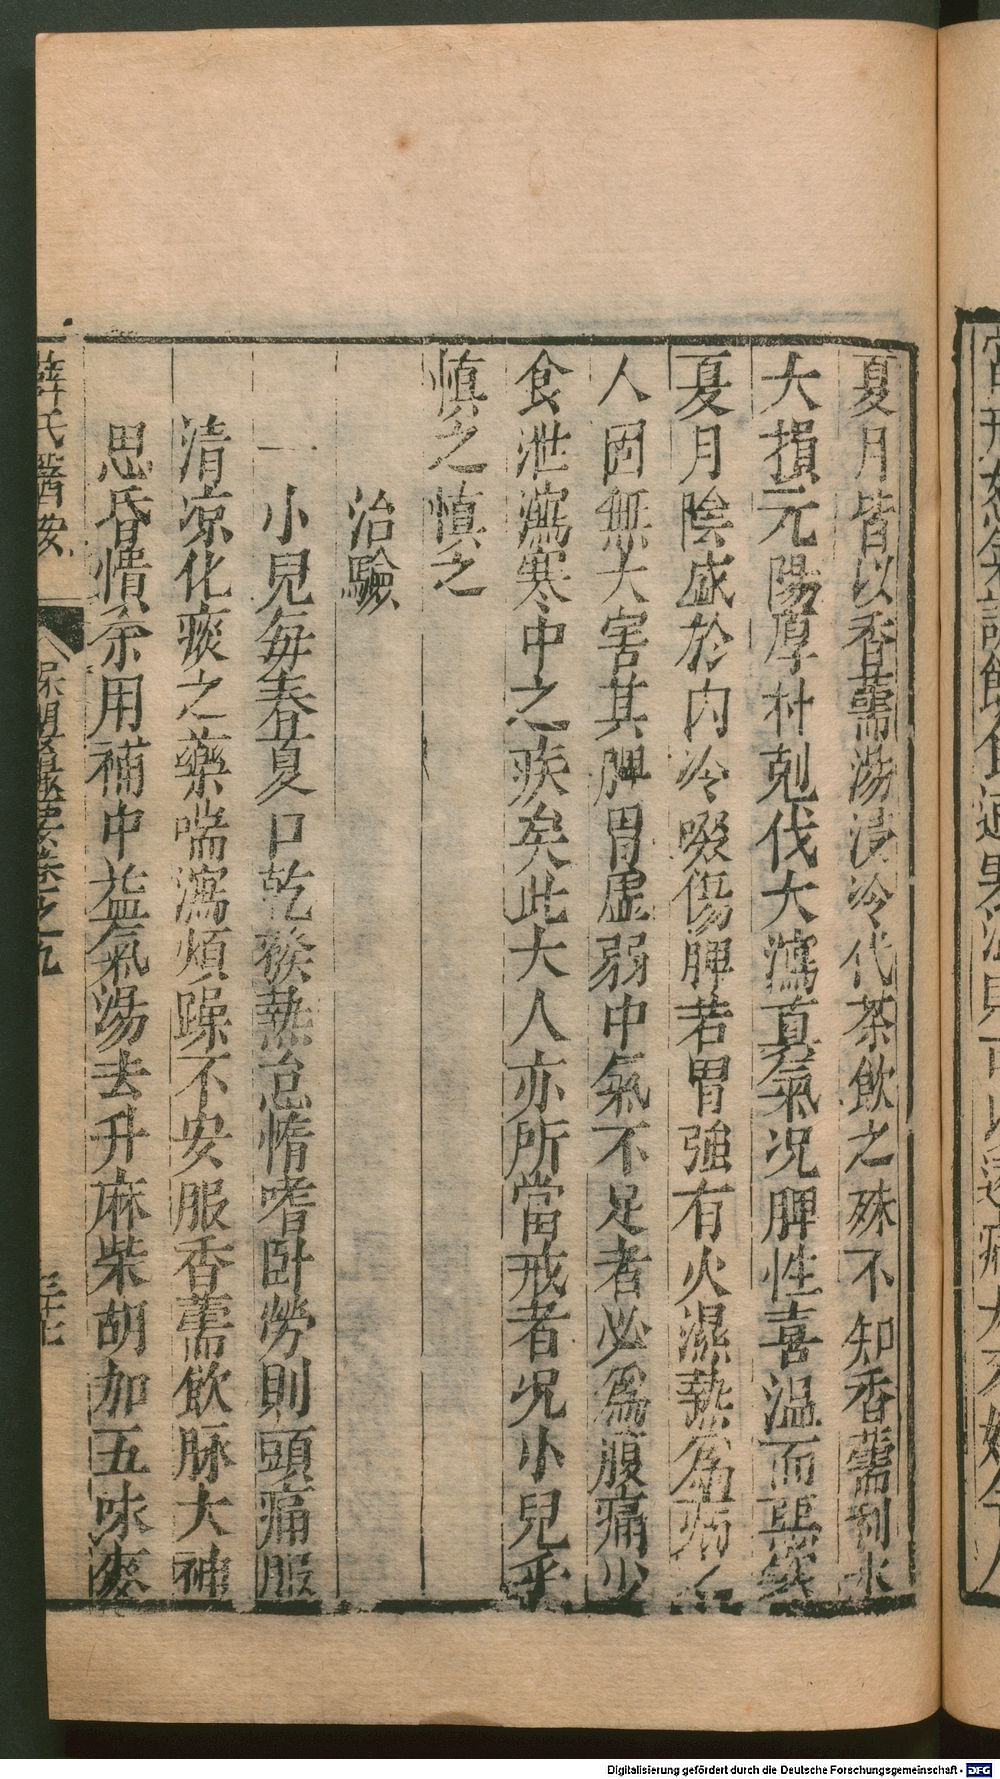 夏月皆以香薷湯浸冷代茶飲之殊不知香薷利水
大損元陽厚朴剋伐大瀉真氣况脾性喜溫而惡寒
夏月陰盛於內冷啜傷脾若胃強有火濕熱為病之
人固無大害其脾胃虛弱中氣不足者必為腹痛少
食泄瀉寒中之疾矣此大人亦所當戒者况小兒乎
慎之慎之
治驗
一小兒每春夏口乾發熱怠惰嗜卧勞則頭痛服
清凉化痰之藥喘瀉煩躁不安服香薷飲脉大神
思昏憒余用補中益氣湯去升麻柴胡加五味麥
薛氏醫按
保嬰撮要卷之九
Digitalisierung gefördert durch die Deutsche Forschungsgemeinschaft - DFG